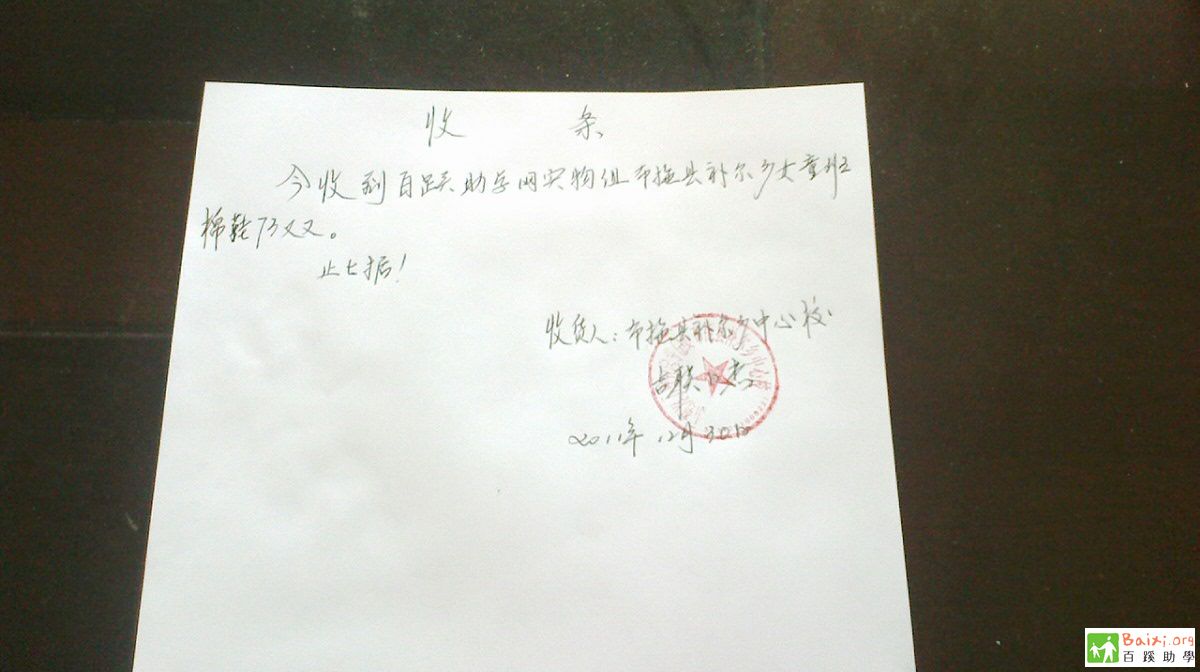 收 条
今收到百蹊助学网实物组布拖县补尔乡女童班
棉鞋73双。
此据!
收货人:布拖县补尔乡中心校
吉联日杰
2011年12月30日
Baixi.org
百蹊助學